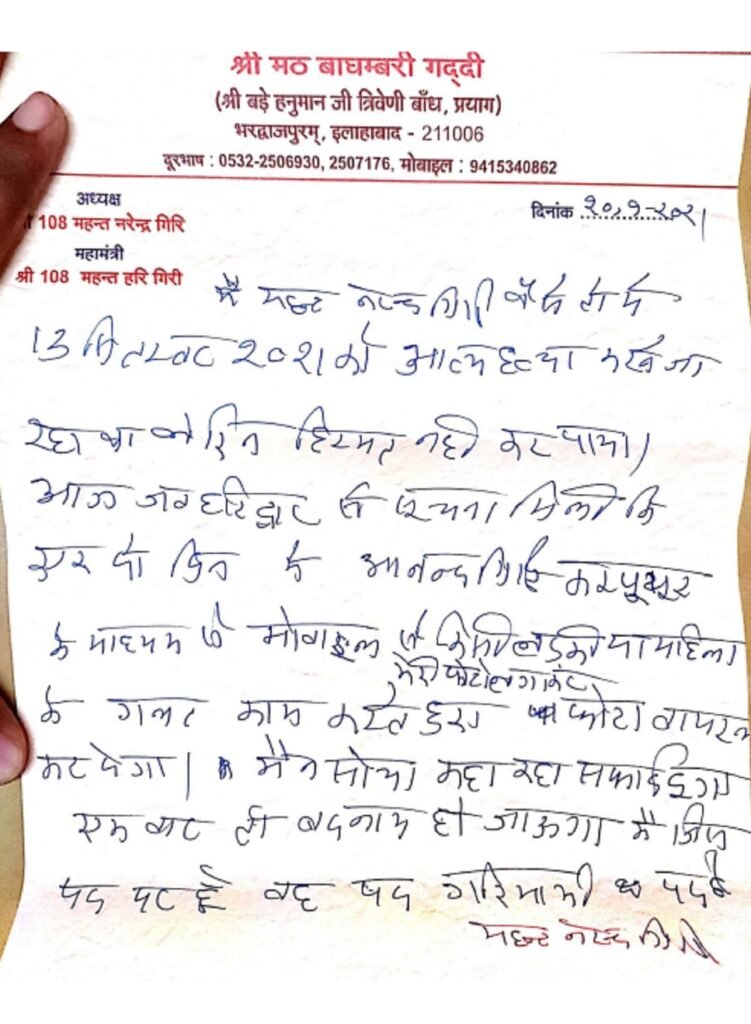 श्री मठ बाघम्बरी गद्दी
(श्री बड़े हनुमान जी त्रिवेणी बाँध, प्रयाग)
भरद्वाजपुरम्, इलाहाबाद - 211006
दूरभाष : 0532-2506930, 2507176, मोबाइल : 9415340862
अध्यक्ष
108 महन्त नरेन्द्र गिरि
महामंत्री
श्री 108 महन्त हरि गिरी
दिनांक
मै महन्त नरेन्द्र गिरि वैसे तो मै
13 सितम्बर 2021 को आत्महत्या करने जा
रहा था लेकिन हिम्मत नही कर पाया।
आज जब हरिद्वार से सूचना मिली कि
एक दो दिन मे आनन्द गिरि कम्प्यूटर
के माध्यम से मोबाइल से किसी लडकी या महिला
मेरी फोटो लगाकर
के गलत काम करते हुए फोटो वायरल
कर देगा। मैने सोचा कहा तक सफाई दूंगा
एक बार तो बदनाम हो जाऊगा मै जिस
पद पर हूँ वह पद गरिमामयी पद है
महन्त नरेन्द्र गिरि